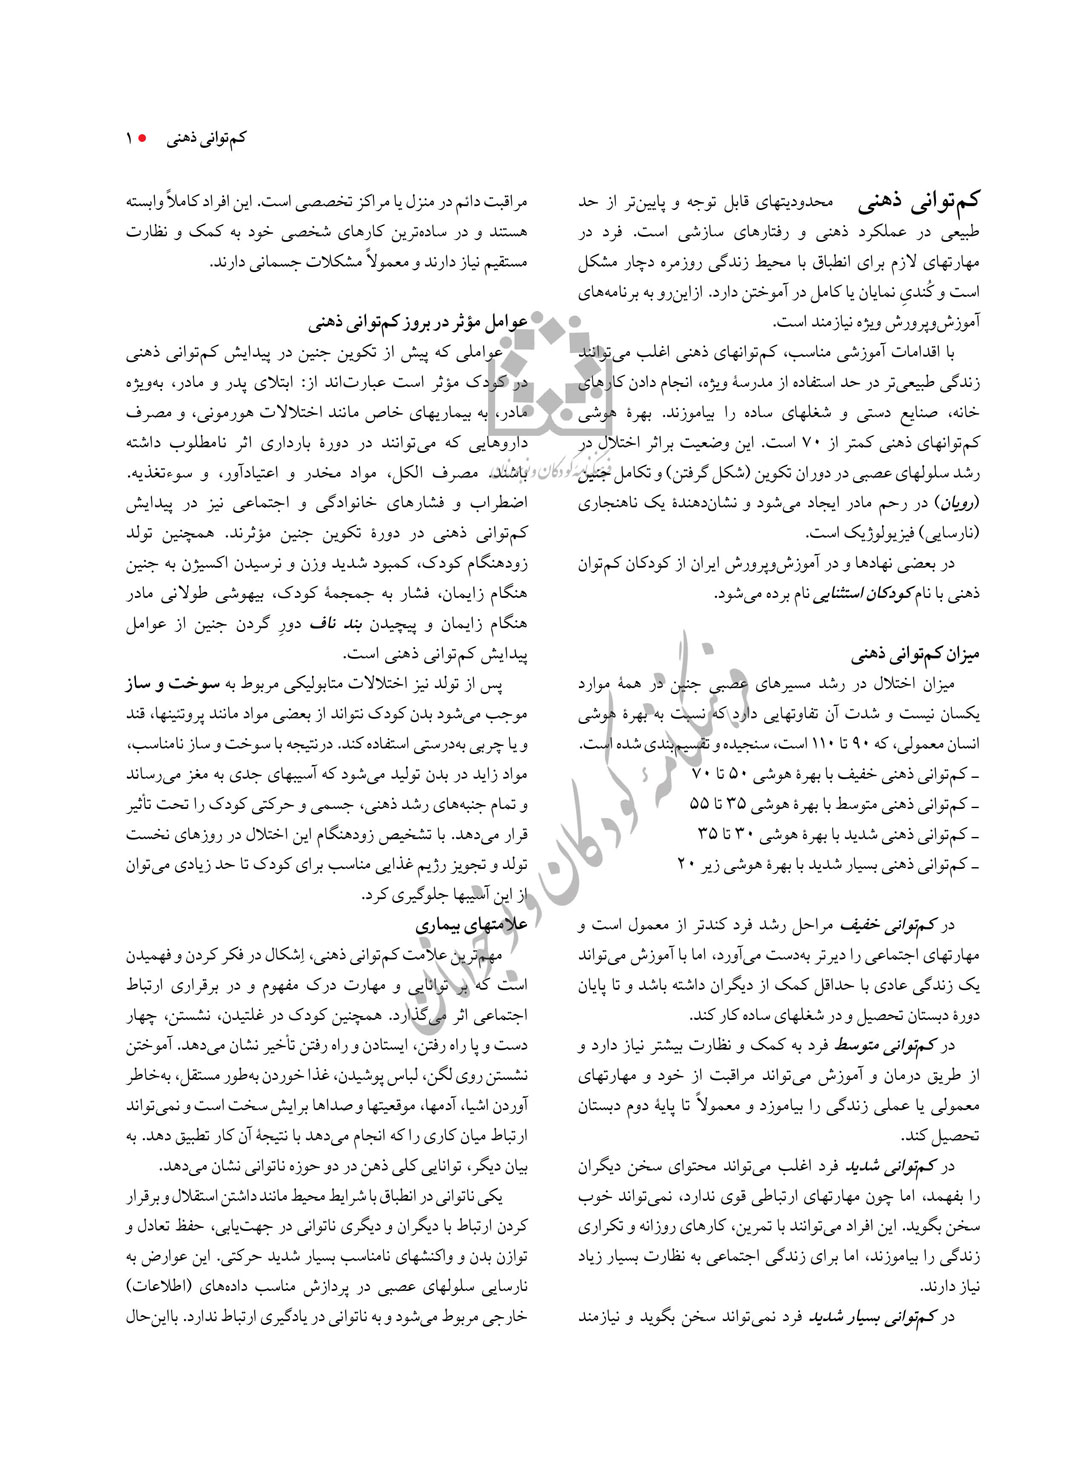 کم‌توانی ذهنی ● ۱
کم‌توانی ذهنی محدودیتهای قابل توجه و پایین‌تر از حد
طبیعی در عملکرد ذهنی و رفتارهای سازشی است. فرد در
مهارتهای لازم برای انطباق با محیط زندگی روزمره دچار مشکل
است و کُندیِ نمایان یا کامل در آموختن دارد. ازاین‌رو به برنامه‌های
آموزش‌وپرورش ویژه نیازمند است.
با اقدامات آموزشی مناسب، کم‌توانهای ذهنی اغلب می‌توانند
زندگی طبیعی‌تر در حد استفاده از مدرسهٔ ویژه، انجام دادن کارهای
خانه، صنایع دستی و شغلهای ساده را بیاموزند. بهرهٔ هوشی
کم‌توانهای ذهنی کمتر از ۷۰ است. این وضعیت براثر اختلال در
رشد سلولهای عصبی در دوران تکوین (شکل گرفتن) و تکامل جنین
(رویان) در رحم مادر ایجاد می‌شود و نشان‌دهندهٔ یک ناهنجاری
(نارسایی) فیزیولوژیک است.
در بعضی نهادها و در آموزش‌وپرورش ایران از کودکان کم‌توان
ذهنی با نام کودکان استثنایی نام برده می‌شود.
میزان کم‌توانی ذهنی
میزان اختلال در رشد مسیرهای عصبی جنین در همهٔ موارد
یکسان نیست و شدت آن تفاوتهایی دارد که نسبت به بهرهٔ هوشی
انسان معمولی، که ۹۰ تا ۱۱۰ است، سنجیده و تقسیم‌بندی شده است.
ـ کم‌توانی ذهنی خفیف با بهرهٔ هوشی ۵۰ تا ۷۰
ـ کم‌توانی ذهنی متوسط با بهرهٔ هوشی ۳۵ تا ۵۵
ـ کم‌توانی ذهنی شدید با بهرهٔ هوشی ۳۰ تا ۳۵
ـ کم‌توانی ذهنی بسیار شدید با بهرهٔ هوشی زیر ۲۰
در کم‌توانی خفیف مراحل رشد فرد کندتر از معمول است و
مهارتهای اجتماعی را دیرتر به‌دست می‌آورد، اما با آموزش می‌تواند
یک زندگی عادی با حداقل کمک از دیگران داشته باشد و تا پایان
دورهٔ دبستان تحصیل و در شغلهای ساده کار کند.
در کم‌توانی متوسط فرد به کمک و نظارت بیشتر نیاز دارد و
از طریق درمان و آموزش می‌تواند مراقبت از خود و مهارتهای
معمولی یا عملی زندگی را بیاموزد و معمولاً تا پایهٔ دوم دبستان
تحصیل کند.
در کم‌توانی شدید فرد اغلب می‌تواند محتوای سخن دیگران
را بفهمد، اما چون مهارتهای ارتباطی قوی ندارد، نمی‌تواند خوب
سخن بگوید. این افراد می‌توانند با تمرین، کارهای روزانه و تکراری
زندگی را بیاموزند، اما برای زندگی اجتماعی به نظارت بسیار زیاد
نیاز دارند.
در کم‌توانی بسیار شدید فرد نمی‌تواند سخن بگوید و نیازمند
مراقبت دائم در منزل یا مراکز تخصصی است. این افراد کاملاً وابسته
هستند و در ساده‌ترین کارهای شخصی خود به کمک و نظارت
مستقیم نیاز دارند و معمولاً مشکلات جسمانی دارند.
عوامل مؤثر در بروز کم‌توانی ذهنی
عواملی که پیش از تکوین جنین در پیدایش کم‌توانی ذهنی
در کودک مؤثر است عبارت‌اند از: ابتلای پدر و مادر، به‌ویژه
مادر، به بیماریهای خاص مانند اختلالات هورمونی، و مصرف
داروهایی که می‌توانند در دورهٔ بارداری اثر نامطلوب داشته
باشند. مصرف الکل، مواد مخدر و اعتیادآور، و سوءتغذیه.
اضطراب و فشارهای خانوادگی و اجتماعی نیز در پیدایش
کم‌توانی ذهنی در دورهٔ تکوین جنین مؤثرند. همچنین تولد
زودهنگام کودک، کمبود شدید وزن و نرسیدن اکسیژن به جنین
هنگام زایمان، فشار به جمجمهٔ کودک، بیهوشی طولانی مادر
هنگام زایمان و پیچیدن بند ناف دورِ گردن جنین از عوامل
پیدایش کم‌توانی ذهنی است.
پس از تولد نیز اختلالات متابولیکی مربوط به سوخت و ساز
موجب می‌شود بدن کودک نتواند از بعضی مواد مانند پروتئینها، قند
و یا چربی به‌درستی استفاده کند. درنتیجه با سوخت و ساز نامناسب،
مواد زاید در بدن تولید می‌شود که آسیبهای جدی به مغز می‌رساند
و تمام جنبه‌های رشد ذهنی، جسمی و حرکتی کودک را تحت تأثیر
قرار می‌دهد. با تشخیص زودهنگام این اختلال در روزهای نخست
تولد و تجویز رژیم غذایی مناسب برای کودک تا حد زیادی می‌توان
از این آسیبها جلوگیری کرد.
علامتهای بیماری
مهم‌ترین علامت کم‌توانی ذهنی، اِشکال در فکر کردن و فهمیدن
است که بر توانایی و مهارت درک مفهوم و در برقراری ارتباط
اجتماعی اثر می‌گذارد. همچنین کودک در غلتیدن، نشستن، چهار
دست و پا راه رفتن، ایستادن و راه رفتن تأخیر نشان می‌دهد. آموختن
نشستن روی لگن، لباس پوشیدن، غذا خوردن به‌طور مستقل، به‌خاطر
آوردن اشیا، آدمها، موقعیتها و صداها برایش سخت است و نمی‌تواند
ارتباط میان کاری را که انجام می‌دهد با نتیجهٔ آن کار تطبیق دهد. به
بیان دیگر، توانایی کلی ذهن در دو حوزه ناتوانی نشان می‌دهد.
یکی ناتوانی در انطباق با شرایط محیط مانند داشتن استقلال و برقرار
کردن ارتباط با دیگران و دیگری ناتوانی در جهت‌یابی، حفظ تعادل و
توازن بدن و واکنشهای نامناسب بسیار شدید حرکتی. این عوارض به
نارسایی سلولهای عصبی در پردازش مناسب داده‌های (اطلاعات)
خارجی مربوط می‌شود و به ناتوانی در یادگیری ارتباط ندارد. بااین‌حال
فرهنگنامهٔ کودکان و نوجوانان
فرهنگنامهٔ کودکان و نوجوانان